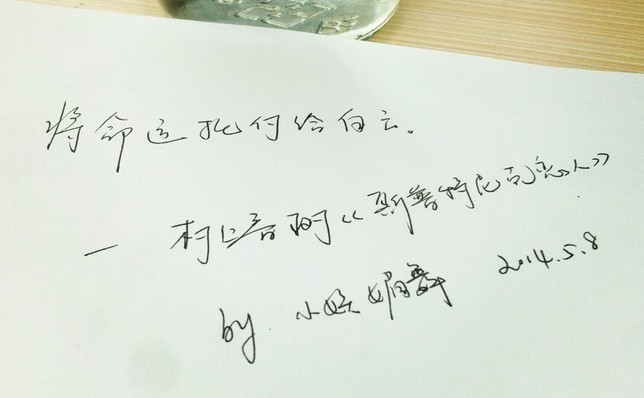 将命运托付给白云。
— 村上春树《斯普特尼克恋人》
by 小妖媚 2014.5.8